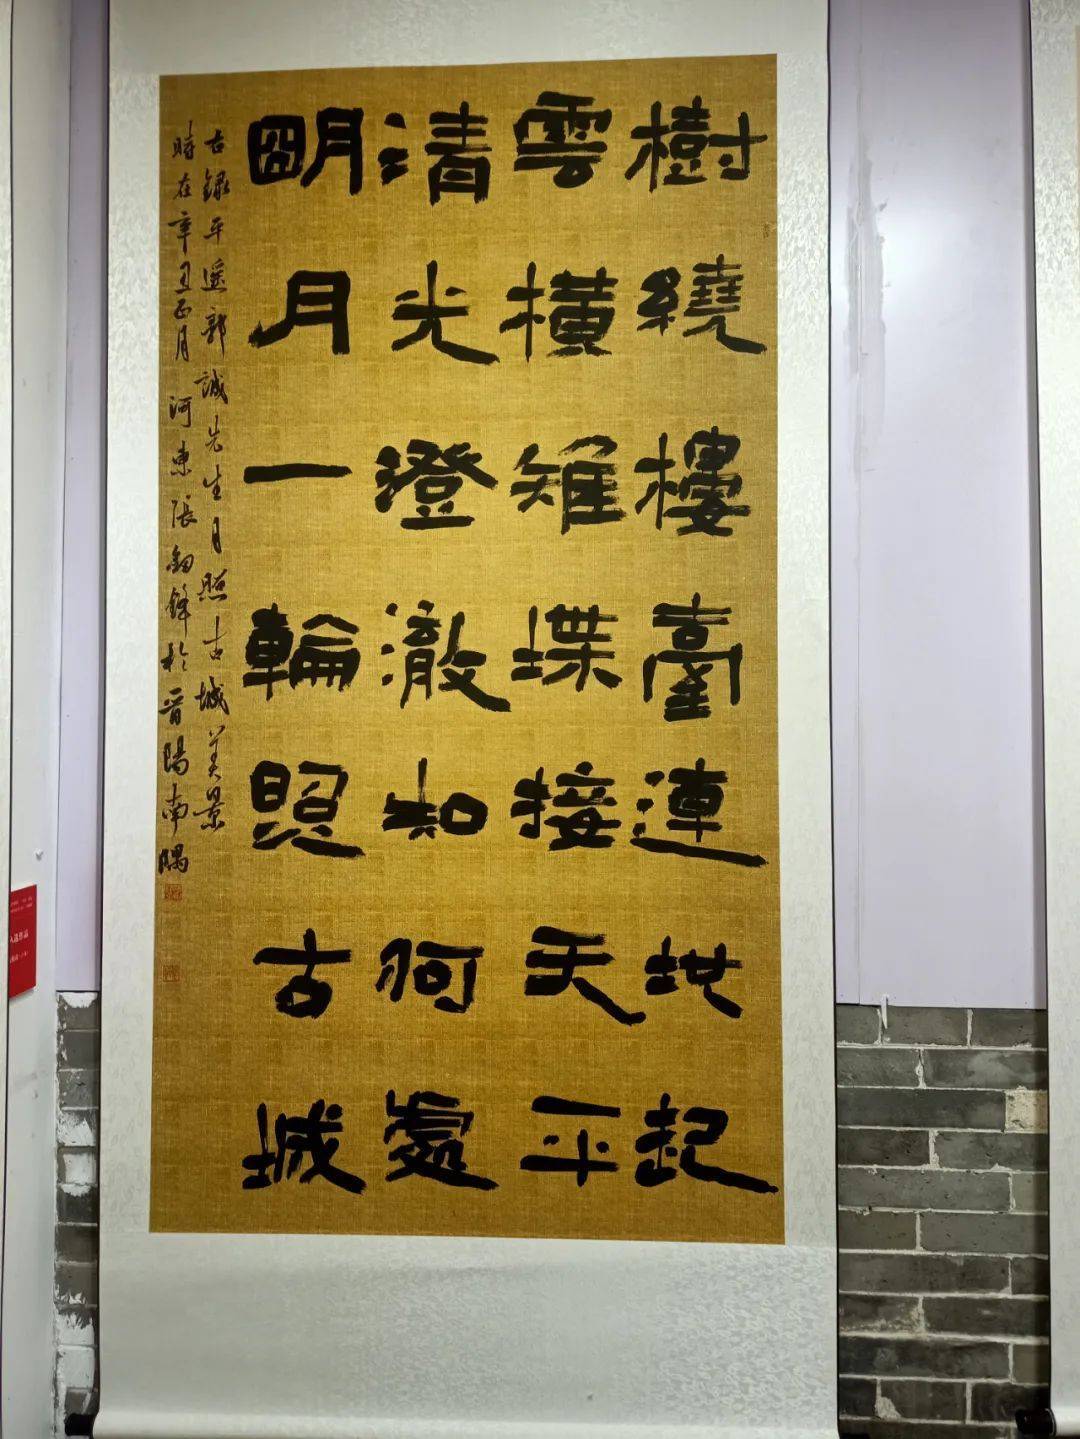 樹繞樓臺連地起
雲橫雉堞接天平
清光澄澈知何處
明月一輪照古城
古錄平遙郭誠先生月照古城美景
時在辛丑正月河東張釗鋒於晉陽南隅
入选作品